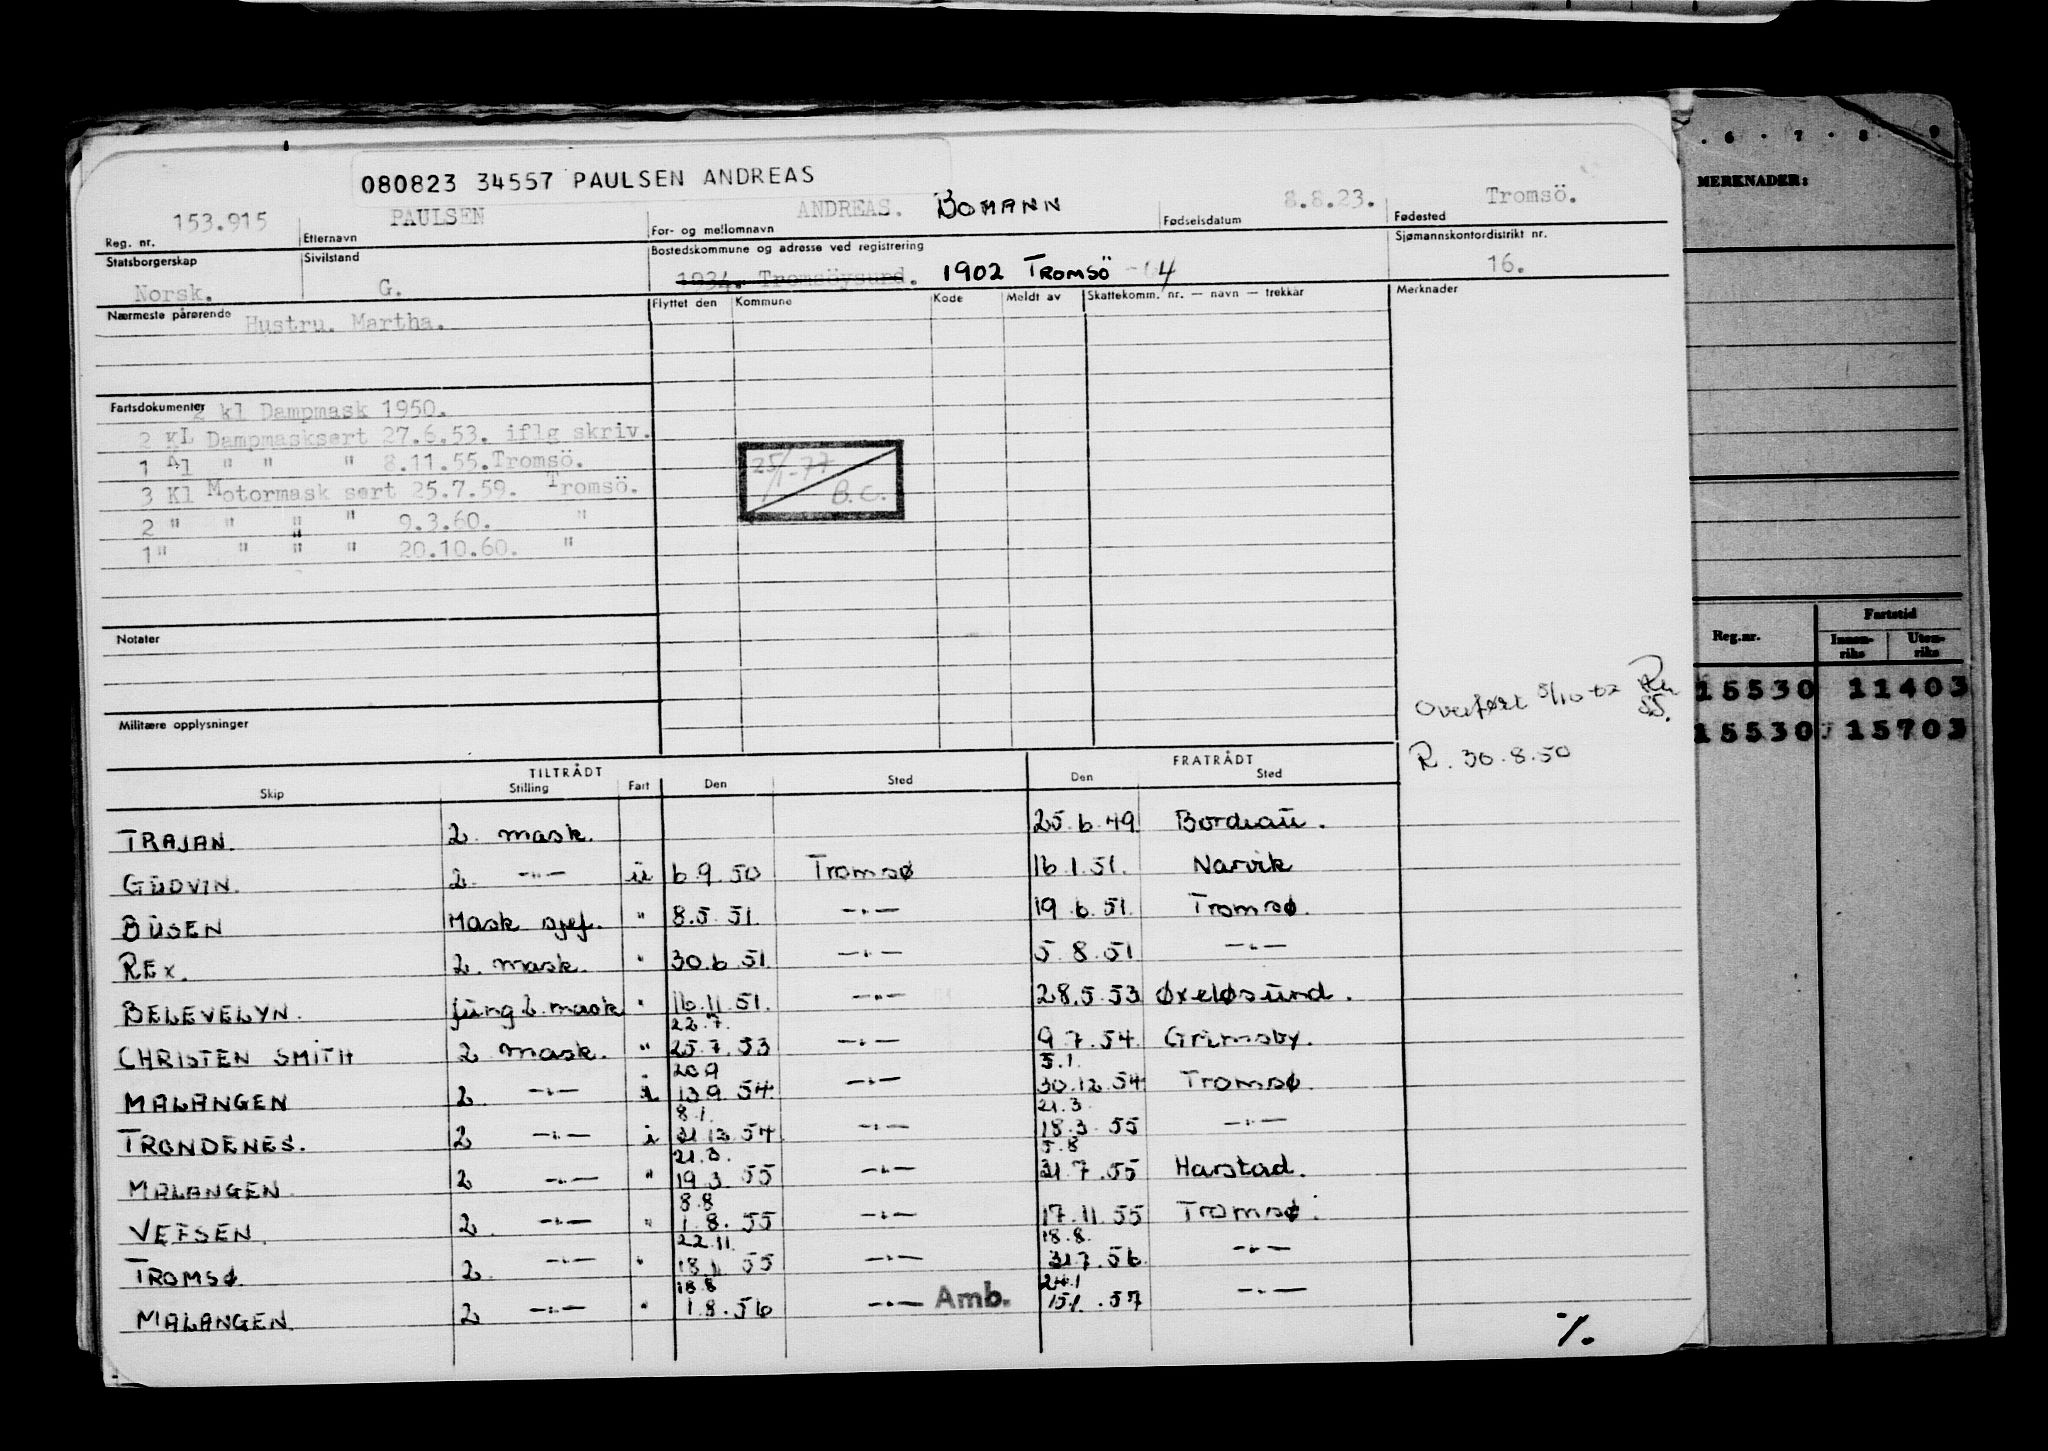 080823 34557 PAULSEN ANDREAS
Reg. nr. 153.915 Etternavn PAULSEN For- og mellomnavn ANDREAS. BOMANN Fødselsdatum 8.8.23. Fødested Tromsö.
Statsborgerskap Norsk. Sivilstand G. Bostedskommune og adresse ved registrering 1934. Tromsöysund. 1902 TROMSÖ Sjømannskontordistrikt nr. 16.
Nærmeste pårørende Hustru. Martha. Flyttet den Kommune Kode Meldt av Skattekomm. nr. — navn — trekkår Merknader
Fartsdokumenter 2 kl Dampmask 1950.
2 KL Dampmasksert 27.6.53. iflg skriv.
1 Kl " " " 8.11.55. Tromsö.
3 Kl Motormask sert 25.7.59. Tromsö.
2 " " " " 9.3.60. "
1 " " " " 20.10.60. "
25/1-77
B.C.
Notater
Militære opplysninger
Overført
R. 30.8.50
TILTRÅDT FRATRÅDT
Skip Stilling Fart Den Sted Den Sted
TRAJAN. 2. mask. 25.6.49 Bordeau.
GUDVIN. 2. —"— ü 6.9.50 Tromsø 16.1.51. Narvik
BUSEN Mask sjef. " 8.5.51. —"— 19.6.51. Tromsø.
REX. 2. mask. " 30.6.51. —"— 5.8.51 —"—
BELEVELYN. fung 2. mask " 16.11.51. —"— 28.5.53 Øxeløsund.
22.7.
CHRISTEN SMITH 2 mask. " 25.7.53 —"— 9.7.54. Grimsby.
20.9 5.1.
MALANGEN 2. —"— i 13.9.54. —"— 30.12.54 Tromsø.
8.1. 21.3.
TRONDENES. 2 —"— i 31.12.54 —"— 18.3.55 —"—
21.3. 5.8
MALANGEN 2 —"— " 19.3.55 —"— 31.7.55 Harstad.
8.8
VEFSEN. 2. —"— " 1.8.55 —"— 17.11.55 Tromsø.
22.11. 18.8.
TROMSØ 2. —"— " 18.11.55 —"— 31.7.56. —"—
18.8 24.1
MALANGEN. 2 —"— " 1.8.56 —"— Amb. 15.1.57 —"—
%
. 6 . 7 . 8 . 9
MERKNADER:
Reg.nr. Fartstid
Innen-riks Uten-riks
15530 11403
15530 15703